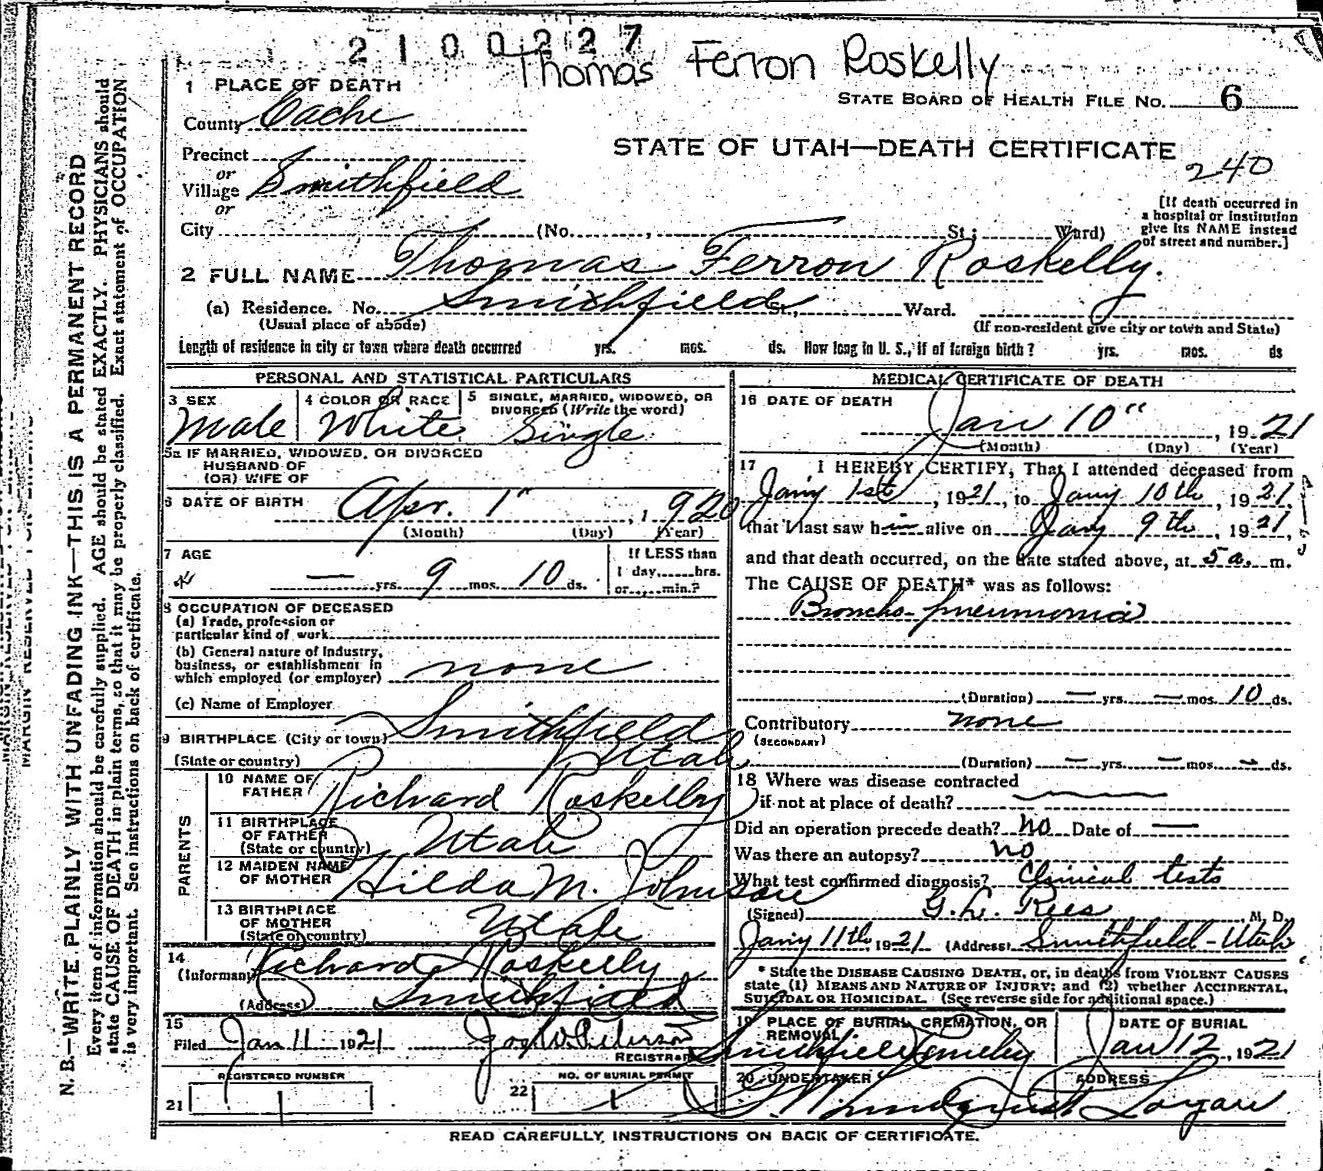 2100227
Thomas Ferron Roskelly
1 PLACE OF DEATH
STATE BOARD OF HEALTH FILE NO. 6
County Cache
STATE OF UTAH—DEATH CERTIFICATE
240
Precinct
or
Village Smithfield
or
City (No. , St.; Ward)
[If death occurred in
a hospital or institution
give its NAME instead
of street and number.]
2 FULL NAME Thomas Ferron Roskelly.
(a) Residence. No. Smithfield St., Ward.
(Usual place of abode) (If non-resident give city or town and State)
Length of residence in city or town where death occurred yrs. mos. ds. How long in U. S., if of foreign birth? yrs. mos. ds
PERSONAL AND STATISTICAL PARTICULARS
3 SEX
Male
4 COLOR OR RACE
White
5 SINGLE, MARRIED, WIDOWED, OR
DIVORCED (Write the word)
Single
5a IF MARRIED, WIDOWED, OR DIVORCED
HUSBAND OF
(OR) WIFE OF
6 DATE OF BIRTH Apr. 1" , 1 920
(Month) (Day) (Year)
7 AGE
— yrs. 9 mos. 10 ds.
If LESS than
1 day,......hrs.
or......min.?
8 OCCUPATION OF DECEASED
(a) Trade, profession or
particular kind of work
(b) General nature of Industry,
business, or establishment in
which employed (or employer) none
(c) Name of Employer
9 BIRTHPLACE (City or town) Smithfield
(State or country) Utah
PARENTS
10 NAME OF
FATHER Richard Roskelly
11 BIRTHPLACE
OF FATHER
(State or country) Utah
12 MAIDEN NAME
OF MOTHER Hilda M. Johnson
13 BIRTHPLACE
OF MOTHER
(State or country) Utah
14
(Informant) Richard Roskelly
(Address) Smithfield
15
Filed Jan 11 1921 Jos W. Peterson
REGISTRAR
REGISTERED NUMBER
21 1
NO. OF BURIAL PERMIT
22 1
MEDICAL CERTIFICATE OF DEATH
16 DATE OF DEATH
Jan 10" , 19 21
(Month) (Day) (Year)
17 I HEREBY CERTIFY, That I attended deceased from
Jany 1st , 1921, to Jany 10th, 1921,
that I last saw him alive on Jany 9th, 1921,
and that death occurred, on the date stated above, at 5 a. m.
The CAUSE OF DEATH* was as follows:
Broncho-pneumonia
(Duration) — yrs. — mos. 10 ds.
Contributory none
(SECONDARY)
(Duration) — yrs. — mos. — ds.
18 Where was disease contracted
if not at place of death?
Did an operation precede death? no Date of —
Was there an autopsy? no
What test confirmed diagnosis? Clinical tests
(Signed) G. L. Rees M. D.
Jany 11th 1921 (Address) Smithfield-Utah
* State the DISEASE CAUSING DEATH, or, in deaths from VIOLENT CAUSES
state (1) MEANS AND NATURE OF INJURY; and (2) whether ACCIDENTAL,
SUICIDAL OR HOMICIDAL. (See reverse side for additional space.)
19 PLACE OF BURIAL, CREMATION, OR
REMOVAL
Smithfield
DATE OF BURIAL
Jan 12, 1921
20 UNDERTAKER
Lundquist
ADDRESS
Logan
READ CAREFULLY, INSTRUCTIONS ON BACK OF CERTIFICATE.
MARGIN RESERVED FOR BINDING
N. B.—WRITE PLAINLY WITH UNFADING INK—THIS IS A PERMANENT RECORD
Every item of information should be carefully supplied. AGE should be stated EXACTLY. PHYSICIANS should
state CAUSE OF DEATH in plain terms, so that it may be properly classified. Exact statement of OCCUPATION
is very important. See instructions on back of certificate.